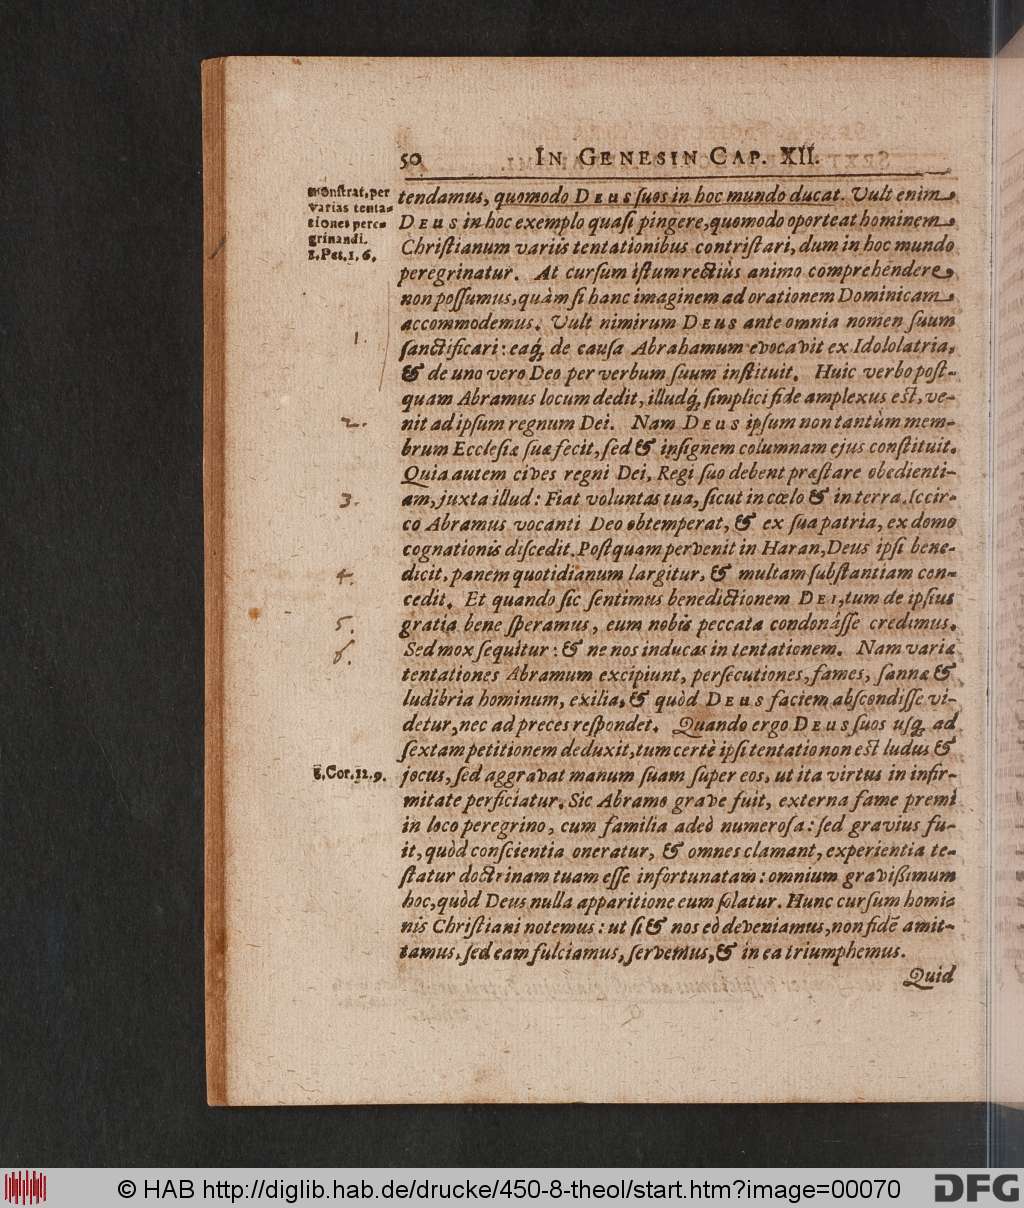 50 IN GENESIN CAP. XII.
monſtrat, per
varias tenta-
tiones pere-
grinandi.
1. Pet. 1. 6.
tendamus, quomodo DEUS ſuos in hoc mundo ducat. Vult enim
DEUS in hoc exemplo quaſi pingere, quomodo oporteat hominem
Chriſtianum variis tentationibus contriſtari, dum in hoc mundo
peregrinatur. At curſum iſtum rectiùs animo comprehendere
non poſſumus, quàm ſi hanc imaginem ad orationem Dominicam
accommodemus. Vult nimirum DEUS ante omnia nomen ſuum
1.
ſanctificari: eaq́; de cauſa Abrahamum evocavit ex Idololatria,
& de uno vero Deo per verbum ſuum inſtituit. Huic verbo poſt-
quam Abramus locum dedit, illudq́; ſimplici fide amplexus eſt, ve-
2.
nit ad ipſum regnum Dei. Nam DEUS ipſum non tantùm mem-
brum Eccleſiæ ſuæ fecit, ſed & inſignem columnam ejus conſtituit.
Quia autem cives regni Dei, Regi ſuo debent præſtare obedienti-
3.
am, juxta illud: Fiat voluntas tua, ſicut in cœlo & in terra. Iccir-
co Abramus vocanti Deo obtemperat, & ex ſua patria, ex domo
cognationis diſcedit. Poſtquam pervenit in Haran, Deus ipſi bene-
4.
dicit, panem quotidianum largitur, & multam ſubſtantiam con-
cedit. Et quando ſic ſentimus benedictionem DEI, tum de ipſius
5.
gratia bene ſperamus, eum nobis peccata condonâſſe credimus.
6.
Sed mox ſequitur: & ne nos inducas in tentationem. Nam variæ
tentationes Abramum excipiunt, perſecutiones, fames, ſannæ &
ludibria hominum, exilia, & quòd DEUS faciem abſcondiſſe vi-
detur, nec ad preces reſpondet. Quando ergo DEUS ſuos uſq; ad
ſextam petitionem deduxit, tum certè ipſi tentatio non eſt ludus &
2. Cor. 12. 9.
jocus, ſed aggravat manum ſuam ſuper eos, ut ita virtus in infir-
mitate perficiatur. Sic Abramo grave fuit, externa fame premi
in loco peregrino, cum familia adeò numeroſa: ſed gravius fu-
it, quòd conſcientia oneratur, & omnes clamant, experientia te-
ſtatur doctrinam tuam eſſe infortunatam: omnium gravißimum
hoc, quòd Deus nulla apparitione eum ſolatur. Hunc curſum homi-
nis Chriſtiani notemus: ut ſi & nos eò deveniamus, non fidē amit-
tamus, ſed eam fulciamus, ſervemus, & in ea triumphemus.
Quid
© HAB http://diglib.hab.de/drucke/450-8-theol/start.htm?image=00070
DFG